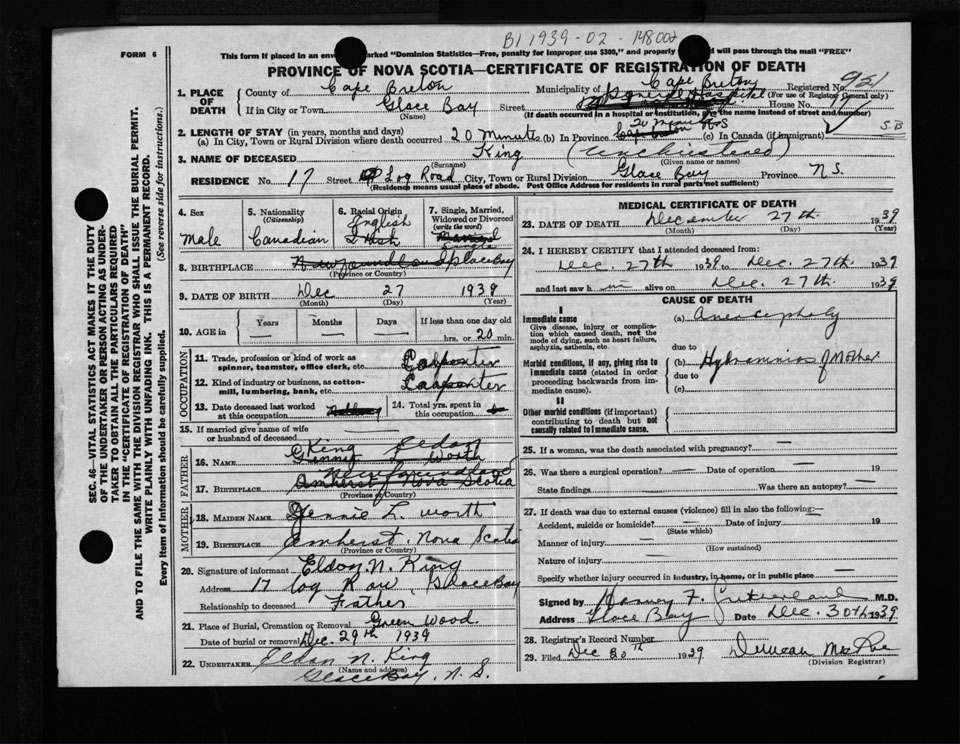 B1 1939-02-148002
FORM 6
This form if placed in an marked "Dominion Statistics—Free, penalty for improper use $300," and properly will pass through the mail "FREE"
PROVINCE OF NOVA SCOTIA—CERTIFICATE OF REGISTRATION OF DEATH
SEC. 46—VITAL STATISTICS ACT MAKES IT THE DUTY
OF THE UNDERTAKER OR PERSON ACTING AS UNDERTAKER
TO OBTAIN ALL THE PARTICULARS REQUIRED
IN THE "CERTIFICATE OF REGISTRATION OF DEATH"
AND TO FILE THE SAME WITH THE DIVISION REGISTRAR WHO SHALL ISSUE THE BURIAL PERMIT.
WRITE PLAINLY WITH UNFADING INK. THIS IS A PERMANENT RECORD.
Every item of information should be carefully supplied. (See reverse side for instructions.)
1. PLACE OF DEATH
County of Cape Breton Municipality of Cape Breton Registered No. 981
(For use of Registrar General only)
If in City or Town Glace Bay Street General Hospital House No.
(Name) (If death occurred in a hospital or institution, give the name instead of street and number)
S.B
2. LENGTH OF STAY (in years, months and days)
(a) In City, Town or Rural Division where death occurred 20 Minute (b) In Province N S (c) In Canada (if immigrant)
3. NAME OF DECEASED King (Unchristened)
(Surname) (Given name or names)
RESIDENCE No. 17 Street Log Road City, Town or Rural Division Glace Bay Province N.S.
(Residence means usual place of abode. Post Office Address for residents in rural parts not sufficient)
4. Sex Male
5. Nationality (Citizenship) Canadian
6. Racial Origin English
7. Single, Married, Widowed or Divorced (write the word) Single
8. BIRTHPLACE Glace Bay
(Province or Country)
9. DATE OF BIRTH Dec 27 1939
(Month) (Day) (Year)
10. AGE in Years Months Days If less than one day old
hrs. or 20 min.
OCCUPATION
11. Trade, profession or kind of work as spinner, teamster, office clerk, etc. Carpenter
12. Kind of industry or business, as cotton-mill, lumbering, bank, etc. Carpenter
13. Date deceased last worked at this occupation
14. Total yrs. spent in this occupation
15. If married give name of wife or husband of deceased
FATHER
16. NAME King Eldon
17. BIRTHPLACE Newfoundland
Amherst Nova Scotia
(Province or Country)
MOTHER
18. MAIDEN NAME Jennie L. Worth
19. BIRTHPLACE Amherst, Nova Scotia
(Province or Country)
20. Signature of informant Eldon N. King
Address 17 Log Row, Glace Bay
Relationship to deceased Father
21. Place of Burial, Cremation or Removal Green Wood.
Date of burial or removal Dec. 29th 1939
22. UNDERTAKER Eldon N. King
(Name and address)
Glace Bay, N. S.
MEDICAL CERTIFICATE OF DEATH
23. DATE OF DEATH December 27th 1939
(Month) (Day) (Year)
24. I HEREBY CERTIFY that I attended deceased from:
Dec. 27th 1939 to Dec. 27th 1939
and last saw h im alive on Dec. 27th 1939
CAUSE OF DEATH
I
Immediate cause
Give disease, injury or complication which caused death, not the mode of dying, such as heart failure, asphyxia, asthenia, etc.
(a) Anencephaly
due to
Morbid conditions, if any, giving rise to immediate cause (stated in order proceeding backwards from immediate cause).
(b) Hydramnios of Mother
due to
(c)
II
Other morbid conditions (if important) contributing to death but not causally related to immediate cause.
25. If a woman, was the death associated with pregnancy?
26. Was there a surgical operation? — Date of operation — 19
State findings Was there an autopsy? —
27. If death was due to external causes (violence) fill in also the following: —
Accident, suicide or homicide? — Date of injury 19
(State which)
Manner of injury —
(How sustained)
Nature of injury —
Specify whether injury occurred in industry, in home, or in public place —
Signed by Henry F. Sutherland M.D.
Address Glace Bay Date Dec. 30th 1939
28. Registrar's Record Number
29. Filed Dec 30th 1939 Duncan McRae
(Division Registrar)